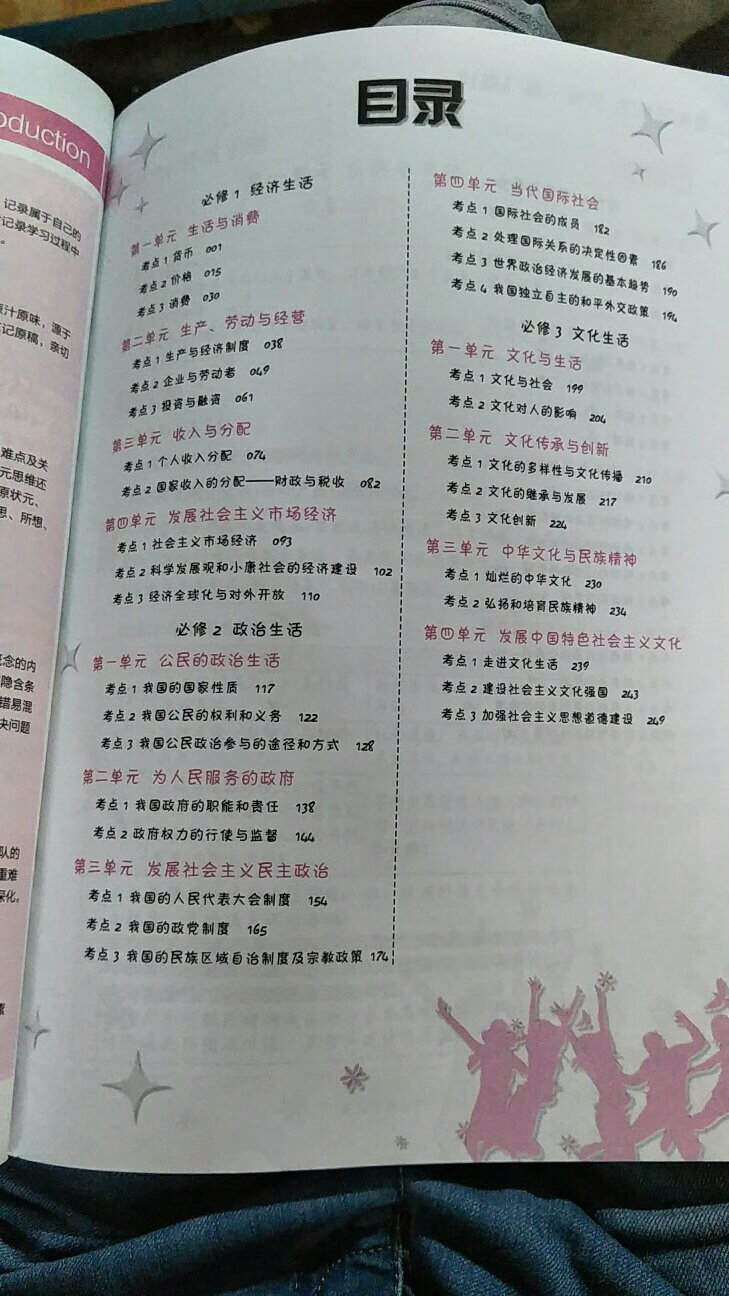 oduction
记录属于自己的
记录学习过程中
原汁原味，源于
笔记原稿，亲切
难点及关
元思维还
原状元、
思、所想、
念的内
隐含条
错易混
决问题
队的
重难
深化。
素
目录
必修1 经济生活
第一单元 生活与消费
考点1 货币 001
考点2 价格 015
考点3 消费 030
第二单元 生产、劳动与经营
考点1 生产与经济制度 038
考点2 企业与劳动者 049
考点3 投资与融资 061
第三单元 收入与分配
考点1 个人收入分配 074
考点2 国家收入的分配——财政与税收 082
第四单元 发展社会主义市场经济
考点1 社会主义市场经济 093
考点2 科学发展观和小康社会的经济建设 102
考点3 经济全球化与对外开放 110
必修2 政治生活
第一单元 公民的政治生活
考点1 我国的国家性质 117
考点2 我国公民的权利和义务 122
考点3 我国公民政治参与的途径和方式 128
第二单元 为人民服务的政府
考点1 我国政府的职能和责任 138
考点2 政府权力的行使与监督 144
第三单元 发展社会主义民主政治
考点1 我国的人民代表大会制度 154
考点2 我国的政党制度 165
考点3 我国的民族区域自治制度及宗教政策 174
第四单元 当代国际社会
考点1 国际社会的成员 182
考点2 处理国际关系的决定性因素 186
考点3 世界政治经济发展的基本趋势 190
考点4 我国独立自主的和平外交政策 194
必修3 文化生活
第一单元 文化与生活
考点1 文化与社会 199
考点2 文化对人的影响 204
第二单元 文化传承与创新
考点1 文化的多样性与文化传播 210
考点2 文化的继承与发展 217
考点3 文化创新 224
第三单元 中华文化与民族精神
考点1 灿烂的中华文化 230
考点2 弘扬和培育民族精神 234
第四单元 发展中国特色社会主义文化
考点1 走进文化生活 239
考点2 建设社会主义文化强国 243
考点3 加强社会主义思想道德建设 249